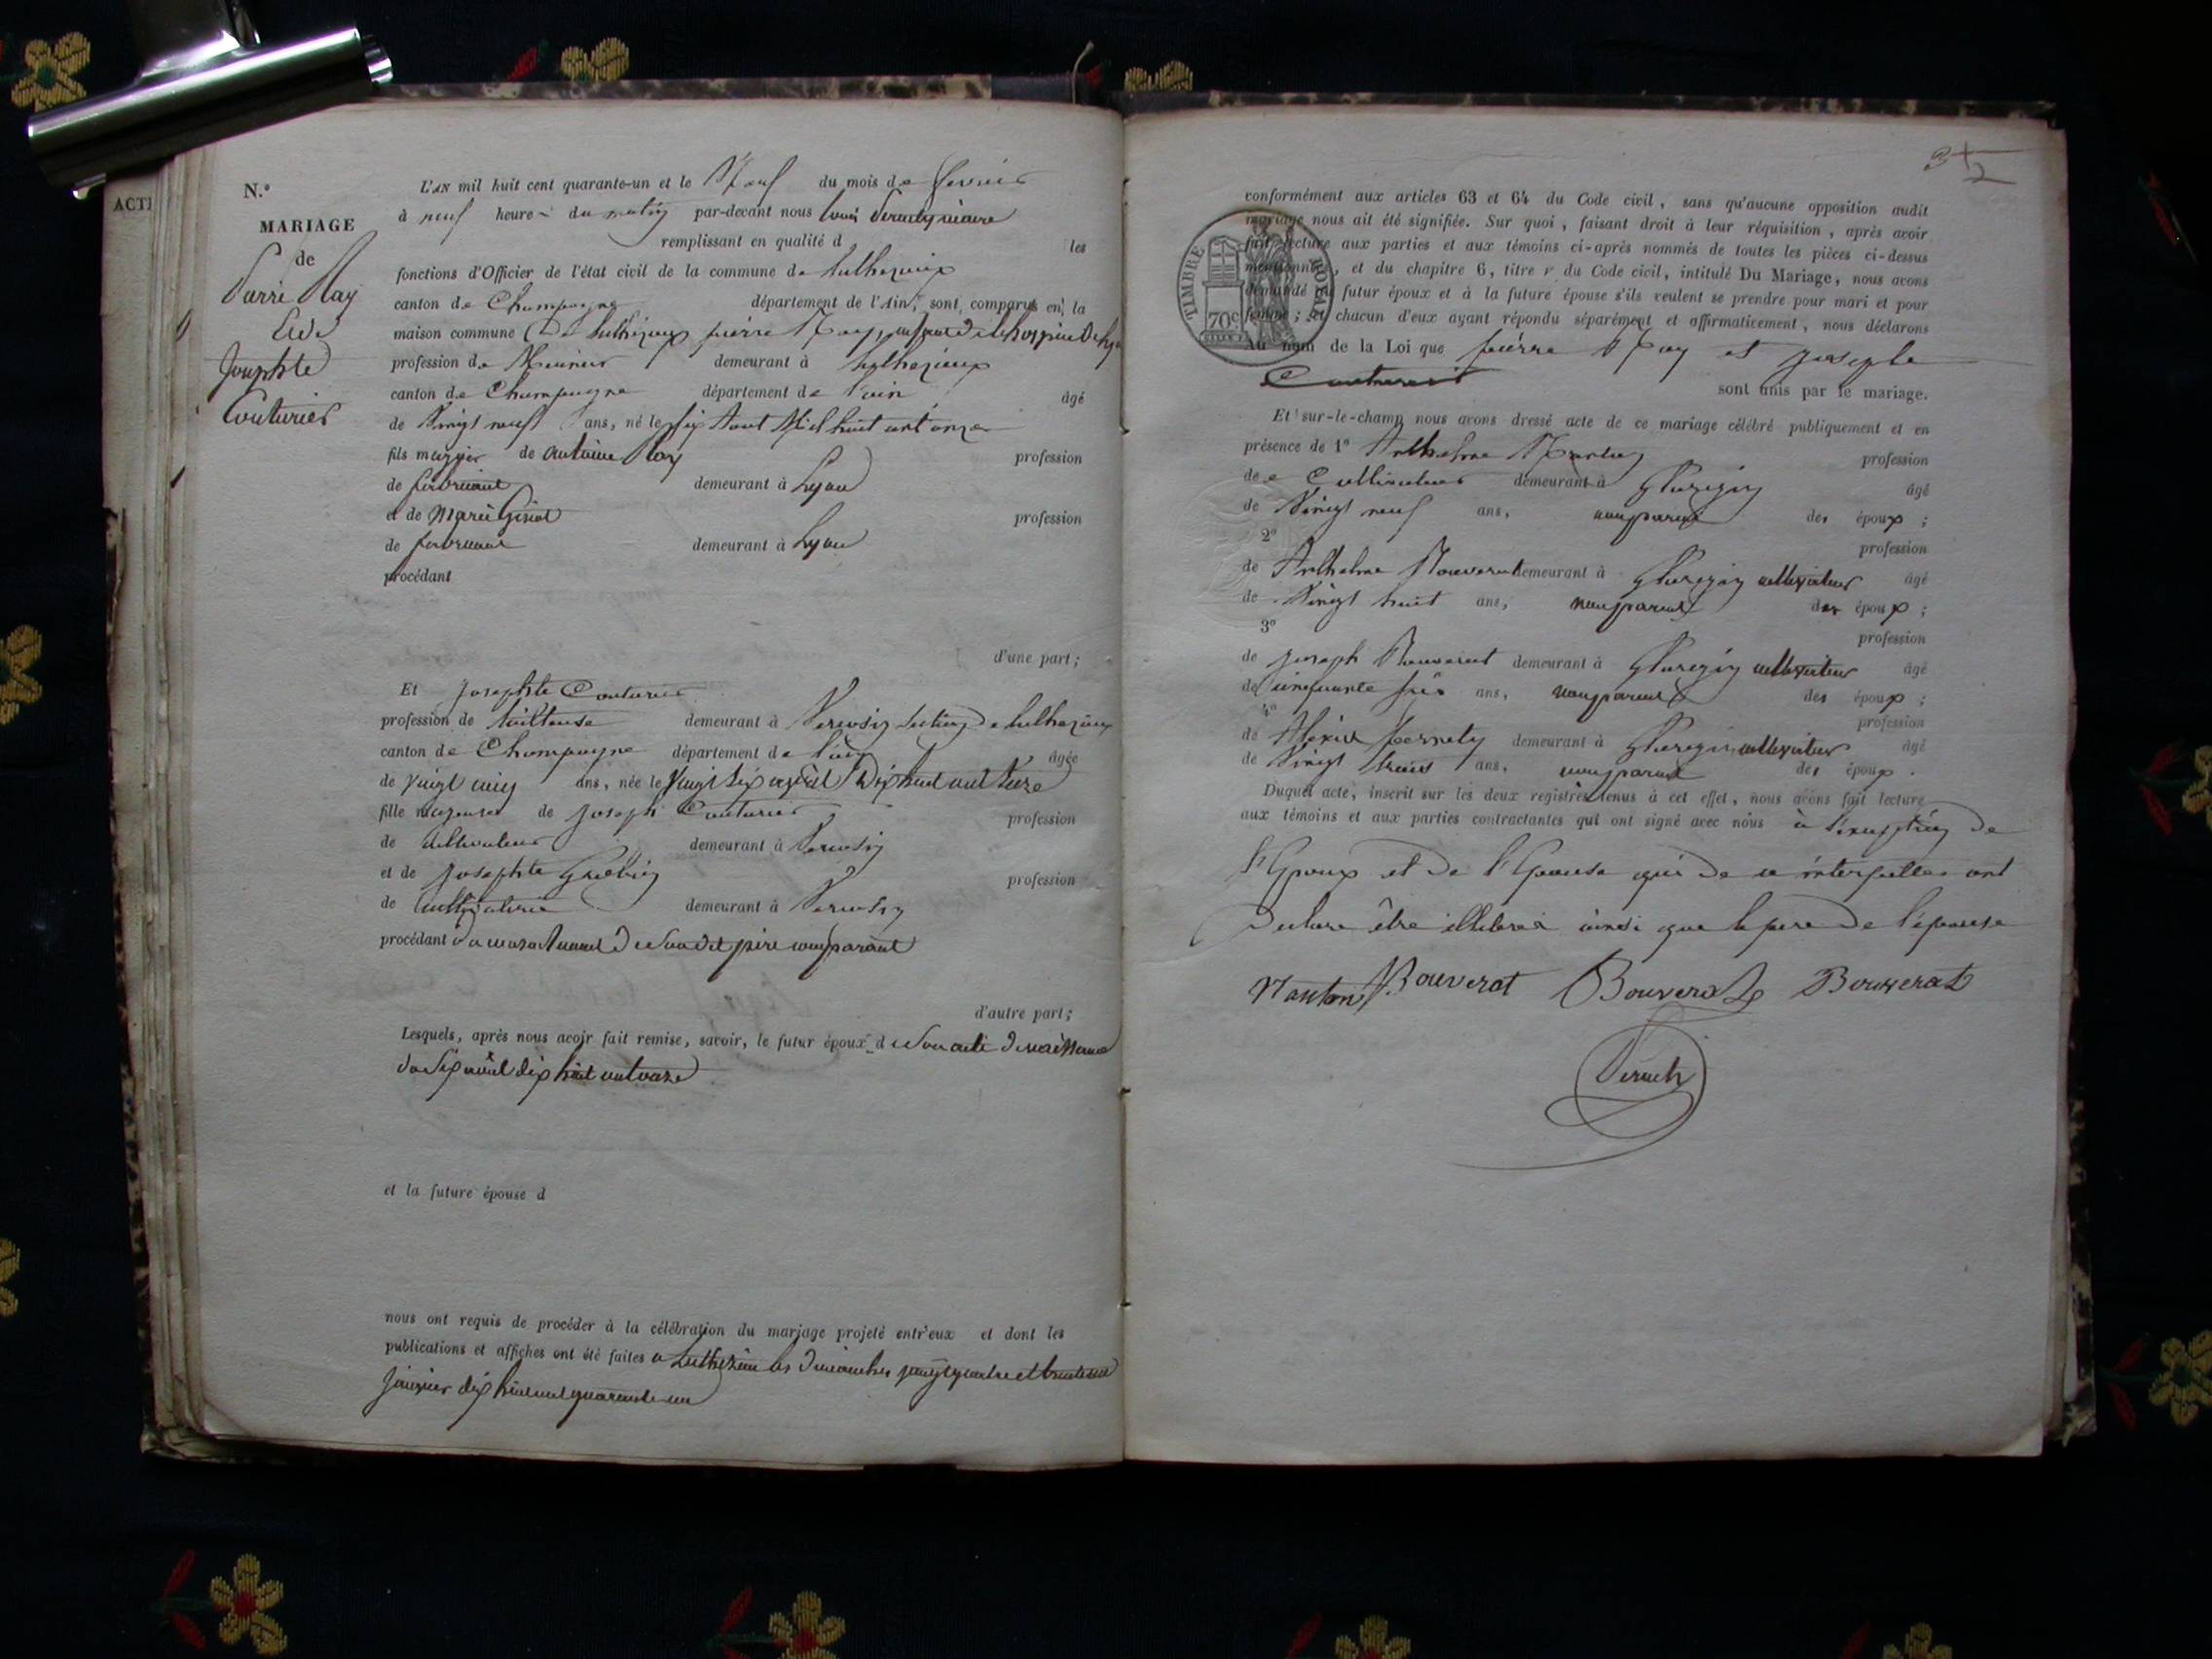 ACTE
N.º
MARIAGE
de
Pierre Ray
Et de
Josephte
Couturier
L'AN mil huit cent quarante-un et le Neuf du mois de fevrier
à neuf heures du matin par-devant nous Louis maire
remplissant en qualité d les
fonctions d'Officier de l'état civil de la commune de Luthezieux
canton de Champagne département de l'Ain, sont comparus en la
maison commune De Luthezieux pierre Ray,
profession de Meunier demeurant à Luthezieux
canton de Champagne département de l'ain âgé
de Vingt neuf ans, né le six Aout Mil huit cent onze
fils majeur de antoine Ray profession
de demeurant à Lyon
et de Marie profession
de demeurant à Lyon
procédant
d'une part;
Et Josephte Couturier
profession de tailleuse demeurant à section de Luthezieux
canton de Champagne département de l'ain âgée
de vingt cinq ans, née le vingt six dix huit cent
fille majeure de Joseph Couturier profession
de cultivateur demeurant à
et de Josephte profession
de cultivatrice demeurant à
procédant du consentement de son dit père comparant
d'autre part;
Lesquels, après nous avoir fait remise, savoir, le futur époux d e son acte de naissance
du six août dix huit cent onze
et la future épouse d
nous ont requis de procéder à la célébration du mariage projeté entr'eux et dont les
publications et affiches ont été faites a Luthezieu les dimanches vingt quatre et trente un
janvier dix huit cent quarante un
conformément aux articles 63 et 64 du Code civil, sans qu'aucune opposition audit
mariage nous ait été signifiée. Sur quoi, faisant droit à leur réquisition, après avoir
fait lecture aux parties et aux témoins ci-après nommés de toutes les pièces ci-dessus
mentionnées, et du chapitre 6, titre v du Code civil, intitulé Du Mariage, nous avons
demandé au futur époux et à la future épouse s'ils veulent se prendre pour mari et pour
femme; et chacun d'eux ayant répondu séparément et affirmativement, nous déclarons
Au nom de la Loi que pierre Ray et josephte
Couturier sont unis par le mariage.
TIMBRE ROYAL
70c
Et sur-le-champ nous avons dressé acte de ce mariage célébré publiquement et en
présence de 1º Anthelme profession
de Cultivateur demeurant à âgé
de Vingt neuf ans, non parent des époux;
2º profession
de Anthelme Bouverat demeurant à cultivateur âgé
de Vingt huit ans, non parent des époux;
3º profession
de Joseph Bouverat demeurant à cultivateur âgé
de cinquante six ans, non parent des époux;
4º profession
de Alexis demeurant à cultivateur âgé
de Vingt trois ans, non parent des époux.
Duquel acte, inscrit sur les deux registres tenus à cet effet, nous avons fait lecture
aux témoins et aux parties contractantes qui ont signé avec nous à l'exception de
l'Epoux et de l'Epouse qui de ce interpellés ont
Déclaré être illiterés ainsi que le pere de l'épouse
Bouverat Bouverat Bouverat